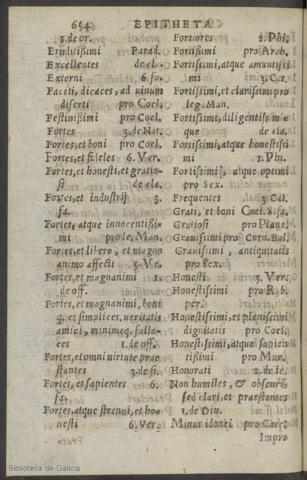 654 EPITHETA
1. de or.
Eruditißimi Parad.
Excellentes de cl.
Externi 6. fa.
Faceti, dicaces, ad unum
diserti pro Coel.
Festiuißimi pro Coel.
Fortes 3. de Nat.
Fortes, et boni pro Coel.
Fortes, et fideles 6. Ver.
Fortes, et honesti, et gratio-
si de cla.
Fortes, et industrij 3.
fa.
Fortes, atque innocentißi-
mi pro le. Man.
Fortes, et libero, et magno
animo affecti 3. Ve.
Fortes, et magnanimi 1.
de off.
Fortes, et magnanimi, boni
q. et simplices, ueritatis
amici, minimeq. falla-
ces 1. de off.
Fortes, et omni uirtute prae
stantes 3. de fi.
Fortes, et sapientes 6.
fa.
Fortes, atque strenui, et bo-
nesti 6. Ver.
Fortiores 2. Phi.
Fortißimi pro Arch.
Fortissimi, atque amantißi
mi 3. Ca.
Fortissimi, et clarissimi pro
leg. Man.
Fortissimi, diligentissimi-
que de cla.
Fortissimi, atque honestissi
mi 1. Phi.
Fortissimi, atque optimi
pro Sex.
Frequentes 3. Cat.
Grati, et boni Coel. 8. fa.
Gratiosi pro Planc.
Grauissimi pro Corn. Bal.
Grauissimi, antiquitatis
pro Sex.
Honesti 3. Ver.
Honestißimi pro R. b.
per.
Honestissimi, et plenissimi
dignitatis pro Coel.
Honestissimi, atque sapien
tißimi pro Mur.
Honorati 2. de le.
Non humiles, & obscuri
sed clari, et praestantes
1. de Diu.
Minus idonei pro Caec.
Impro
Biblioteca de Galicia